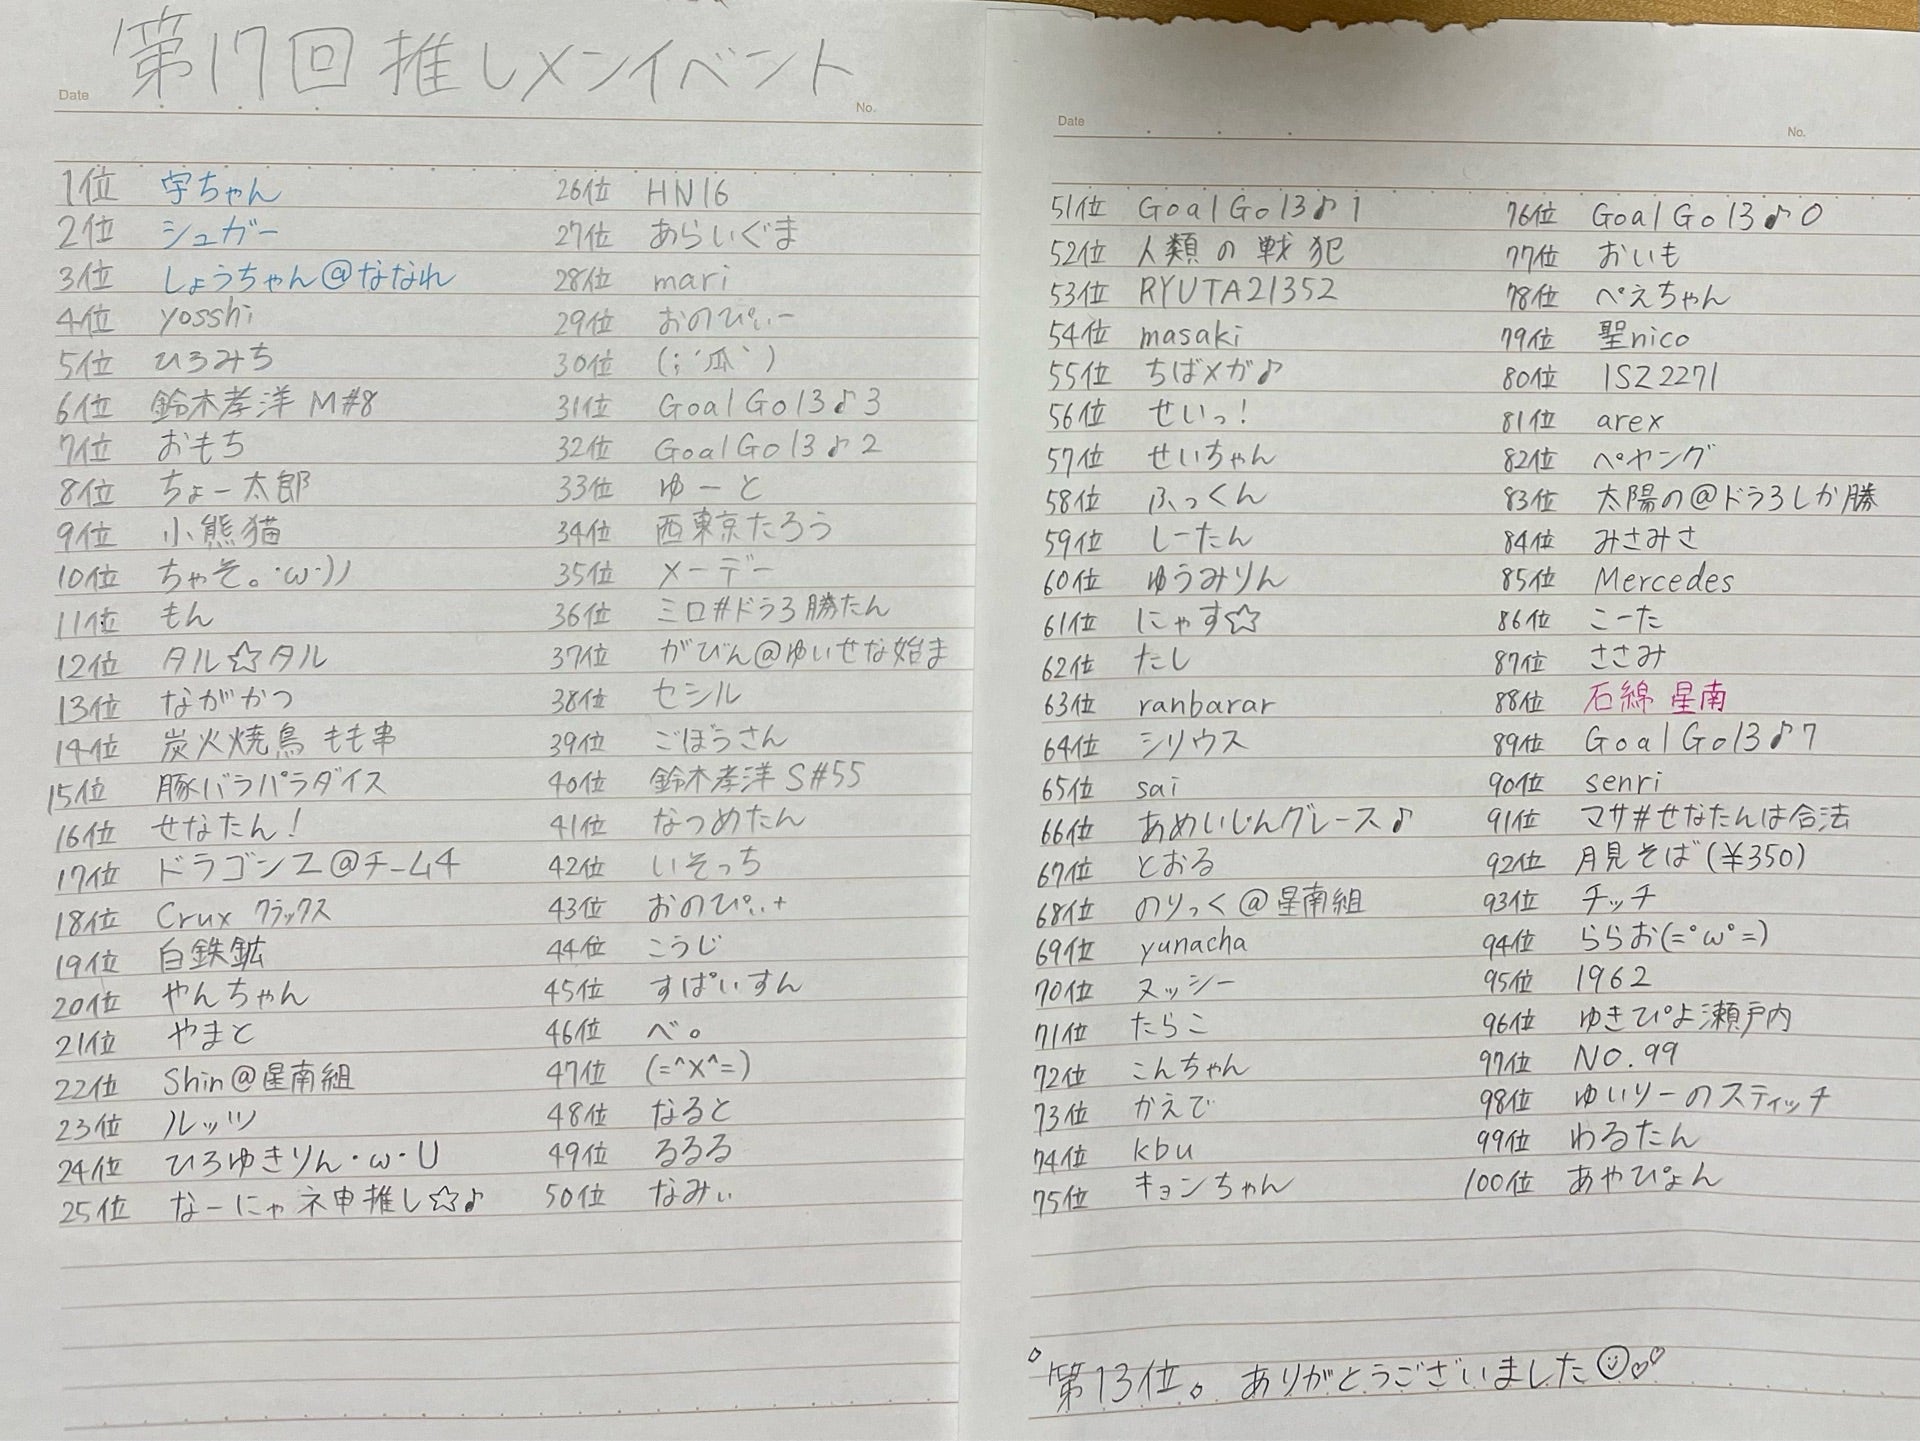 第17回 推しメンイベント
Date
No.
1位 宇ちゃん
2位 シュガー
3位 しょうちゃん@ななれ
4位 yosshi
5位 ひろみち
6位 鈴木孝洋 M#8
7位 おもち
8位 ちょー太郎
9位 小熊猫
10位 ちゃそ。・ω・)ノ
11位 もん
12位 タル☆タル
13位 ながかつ
14位 炭火焼鳥 もも串
15位 豚バラパラダイス
16位 せなたん!
17位 ドラゴンZ@チーム4
18位 Crux クラックス
19位 白鉄鉱
20位 やんちゃん
21位 やまと
22位 Shin@星南組
23位 ルッツ
24位 ひろゆきりん・ω・U
25位 なーにゃネ申推し☆♪
26位 HN16
27位 あらいぐま
28位 mari
29位 おのぴぃー
30位 (;´瓜`)
31位 GoalGo13♪3
32位 GoalGo13♪2
33位 ゆーと
34位 西東京たろう
35位 メーデー
36位 ミロ#ドラ3勝たん
37位 がびん@ゆいせな始ま
38位 セシル
39位 ごぼうさん
40位 鈴木孝洋 S#55
41位 なつめたん
42位 いそっち
43位 おのぴぃ+
44位 こうじ
45位 すぱいすん
46位 べ。
47位 (=^x^=)
48位 なると
49位 るるる
50位 なみぃ
Date
No.
51位 GoalGo13♪1
52位 人類の戦犯
53位 RYUTA21352
54位 masaki
55位 ちばメガ♪
56位 せいっ!
57位 せいちゃん
58位 ふっくん
59位 しーたん
60位 ゆうみりん
61位 にゃす☆
62位 たし
63位 ranbarar
64位 シリウス
65位 sai
66位 あめいじんグレース♪
67位 とおる
68位 のりっく@星南組
69位 yunacha
70位 ヌッシー
71位 たらこ
72位 こんちゃん
73位 かえで
74位 kbu
75位 キョンちゃん
76位 GoalGo13♪0
77位 おいも
78位 ぺえちゃん
79位 聖nico
80位 ISZ2271
81位 arex
82位 ペヤング
83位 太陽の@ドラ3しか勝
84位 みさみさ
85位 Mercedes
86位 こーた
87位 ささみ
88位 石綿 星南
89位 GoalGo13♪7
90位 senri
91位 マサ#せなたんは合法
92位 月見そば(¥350)
93位 チッチ
94位 ららお(=°ω°=)
95位 1962
96位 ゆきぴよ瀬戸内
97位 NO.99
98位 ゆいりーのスティッチ
99位 わるたん
100位 あやぴょん
第13位。ありがとうございました☺♡♡